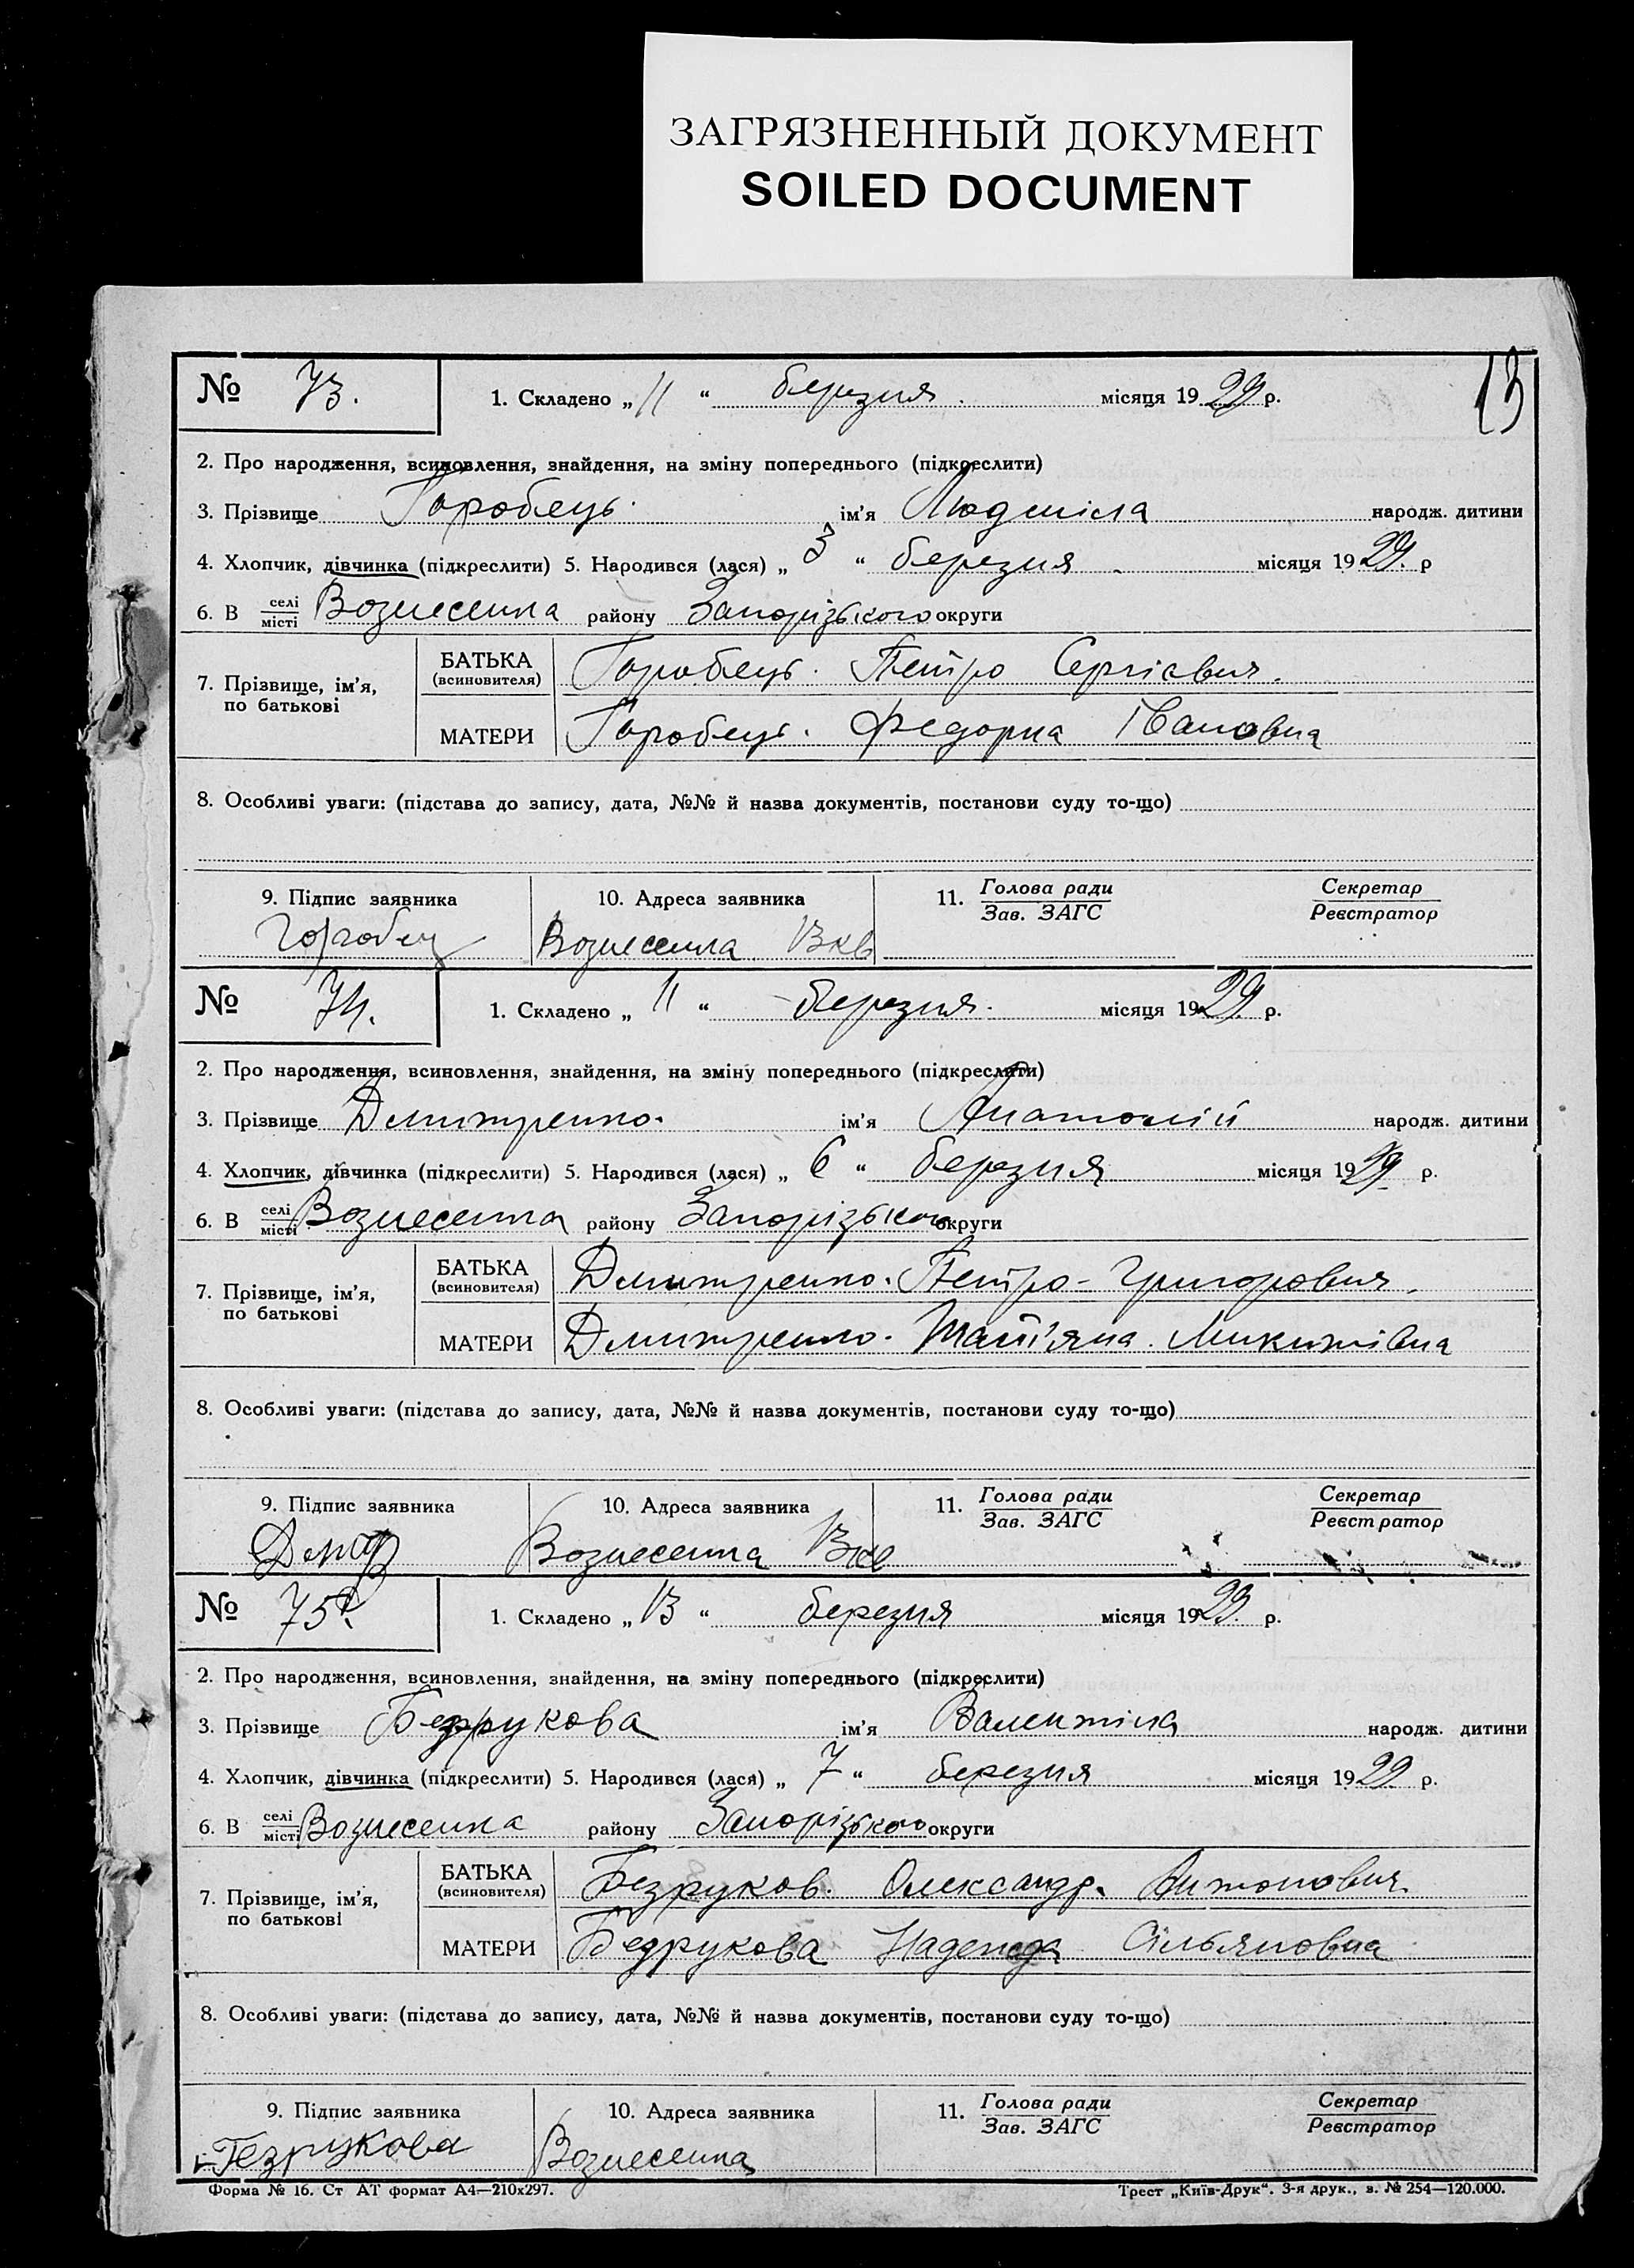 ЗАГРЯЗНЕННЫЙ ДОКУМЕНТ
SOILED DOCUMENT
13
№ 73. 1. Складено „ 11 “ березня. місяця 1929 р.
2. Про народження, всиновлення, знайдення, на зміну попереднього (підкреслити)
3. Прізвище Горобець. ім'я Людміла народж. дитини
4. Хлопчик, дівчинка (підкреслити) 5. Народився (лася) „ 3 “ березня місяця 1929. р
6. В селі місті Вознесенка району Запорізького округи
7. Прізвище, ім'я, по батькові
БАТЬКА (всиновителя) Горобець. Петро Сергієвич.
МАТЕРИ Горобець. Федорка Івановна
8. Особливі уваги: (підстава до запису, дата, №№ й назва документів, постанови суду то-що)
9. Підпис заявника 10. Адреса заявника 11. Голова ради Зав. ЗАГС Секретар Реєстратор
Горобец Вознесенка
№ 74. 1. Складено „ 11 “ березня. місяця 1929. р.
2. Про народження, всиновлення, знайдення, на зміну попереднього (підкреслити)
3. Прізвище Дмитренко. ім'я Анатолій народж. дитини
4. Хлопчик, дівчинка (підкреслити) 5. Народився (лася) „ 6 “ березня місяця 1929 р.
6. В селі місті Вознесенка району Запорізького округи
7. Прізвище, ім'я, по батькові
БАТЬКА (всиновителя) Дмитренко. Петро - Григорович.
МАТЕРИ Дмитренко. Тат'яна. Микитівна
8. Особливі уваги: (підстава до запису, дата, №№ й назва документів, постанови суду то-що)
9. Підпис заявника 10. Адреса заявника 11. Голова ради Зав. ЗАГС Секретар Реєстратор
Вознесенка
№ 75. 1. Складено „ 13 “ березня місяця 1929. р.
2. Про народження, всиновлення, знайдення, на зміну попереднього (підкреслити)
3. Прізвище Безрукова ім'я Валентіна народж. дитини
4. Хлопчик, дівчинка (підкреслити) 5. Народився (лася) „ 7 “ березня місяця 1929. р.
6. В селі місті Вознесенка району Запорізького округи
7. Прізвище, ім'я, по батькові
БАТЬКА (всиновителя) Безруков. Олександр. Антонович.
МАТЕРИ Безрукова Надежда Сільяновна
8. Особливі уваги: (підстава до запису, дата, №№ й назва документів, постанови суду то-що)
9. Підпис заявника 10. Адреса заявника 11. Голова ради Зав. ЗАГС Секретар Реєстратор
Безрукова Вознесенка
Форма № 16. Ст АТ формат А4—210х297. Трест „Київ-Друк“. 3-я друк., з. № 254—120.000.